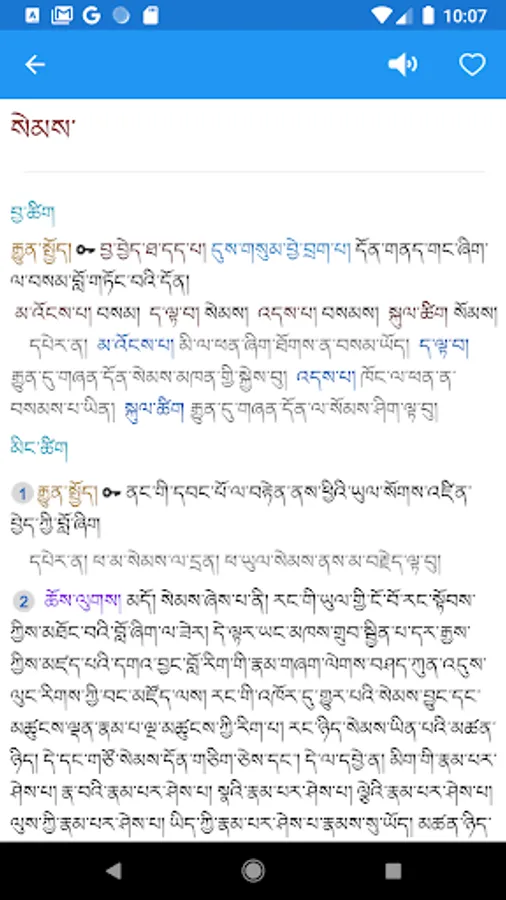 10:07
སེམས་
བྱ་ཚིག
རྒྱུན་སྤྱོད། བྱ་བྱེད་ཐ་དད་པ། དུས་གསུམ་བྱེ་བྲག་པ། དོན་གནད་གང་ཞིག་
ལ་བསམ་བློ་གཏོང་བའི་དོན།
མ་འོངས་པ། བསམ། ད་ལྟ་བ། སེམས། འདས་པ། བསམས། སྐུལ་ཚིག སོམས།
དཔེར་ན། མ་འོངས་པ། མི་ལ་ཕན་ཞིག་ཐོགས་ན་བསམ་ཡོད། ད་ལྟ་བ།
རྒྱུན་དུ་གཞན་དོན་སེམས་མཁན་གྱི་སྐྱེས་བུ། འདས་པ། ཁོང་ལ་ཕན་ན་
བསམས་པ་ཡིན། སྐུལ་ཚིག རྒྱུན་དུ་གཞན་དོན་ལ་སོམས་ཤིག་ལྟ་བུ།
མིང་ཚིག
1 རྒྱུན་སྤྱོད། ནང་གི་དབང་པོ་ལ་བརྟེན་ནས་ཕྱིའི་ཡུལ་སོགས་འཛིན་
བྱེད་ཀྱི་བློ་ཞིག
དཔེར་ན། ཕ་མ་སེམས་ལ་དྲན། ཕ་ཡུལ་སེམས་ནས་མ་བརྗེད་ལྟ་བུ།
2 ཆོས་ལུགས། མདོ། སེམས་ཞེས་པ་ནི། རང་གི་ཡུལ་གྱི་ངོ་བོ་རང་སྟོབས་
ཀྱིས་མཐོང་བའི་བློ་ཞིག་ལ་ཟེར། དེ་ལྟར་ཡང་མཁས་གྲུབ་སྦྱིན་པ་དར་རྒྱས་
ཀྱིས་མཛད་པའི་དགའ་བྱང་བློ་རིག་གི་རྣམ་གཞག་ལེགས་བཤད་ཀུན་འདུས་
ལུང་རིགས་ཀྱི་བང་མཛོད་ལས། རང་གི་འཁོར་དུ་གྱུར་པའི་སེམས་བྱུང་དང་
མཚུངས་ལྡན་རྣམ་པ་ལྔ་མཚུངས་ཀྱི་རིག་པ། རང་ཉིད་སེམས་ཡིན་པའི་མཚན་
ཉིད། དེ་དང་གཙོ་སེམས་དོན་གཅིག་ཅེས་དང་། དེ་ལ་དབྱེ་ན། མིག་གི་རྣམ་པར་
ཤེས་པ། རྣ་བའི་རྣམ་པར་ཤེས་པ། སྣའི་རྣམ་པར་ཤེས་པ། ལྕེའི་རྣམ་པར་ཤེས་པ།
ལུས་ཀྱི་རྣམ་པར་ཤེས་པ། ཡིད་ཀྱི་རྣམ་པར་ཤེས་པ་རྣམས་སུ་ཡོད། མཚན་ཉིད་